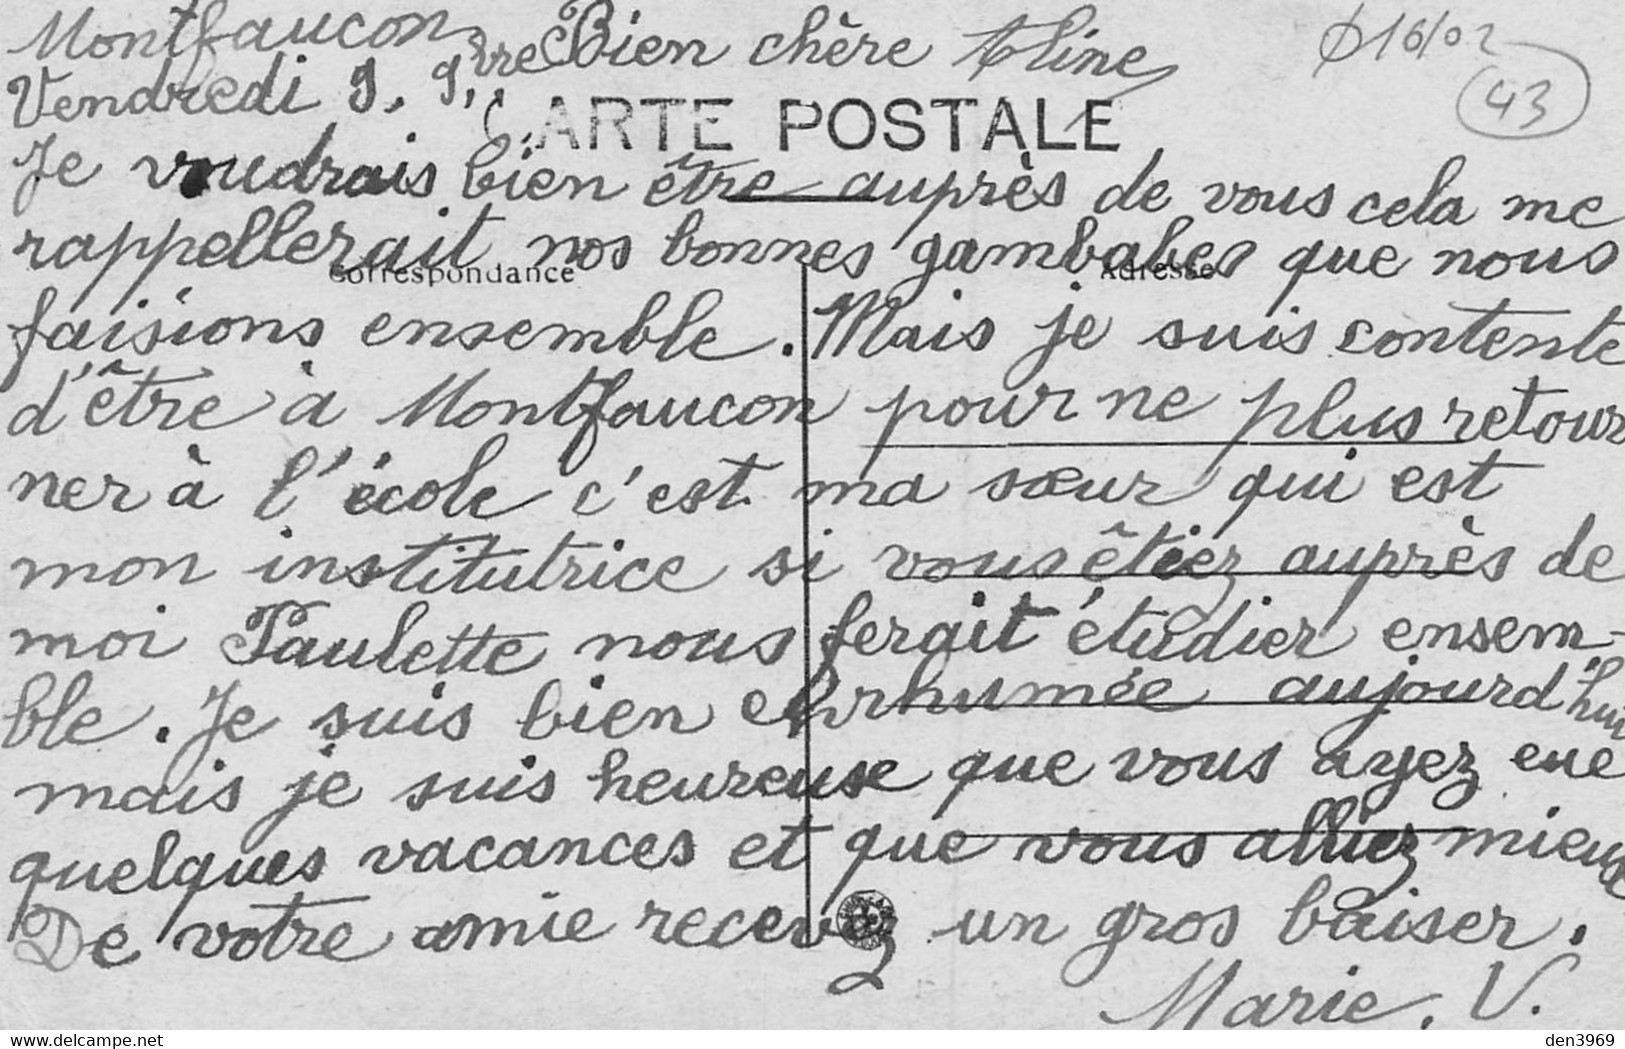 Montfaucon Bien chère Aline
Vendredi 9. 9bre
Ø16/02
43
CARTE POSTALE
Je voudrais bien être auprès de vous cela me
rappellerait nos bonnes gambabes que nous
Correspondance Adresse
faisions ensemble. Mais je suis contente
d'être à Montfaucon pour ne plus retour
ner à l'école c'est ma sœur qui est
mon institutrice si vous êtiez auprès de
moi Paulette nous ferait étudier ensem-
ble. Je suis bien enrhumée aujourd'hui
mais je suis heureuse que vous ayez eue
quelques vacances et que vous alliez mieux
De votre amie recevez un gros baiser.
Marie. V.
www.delcampe.net den3969